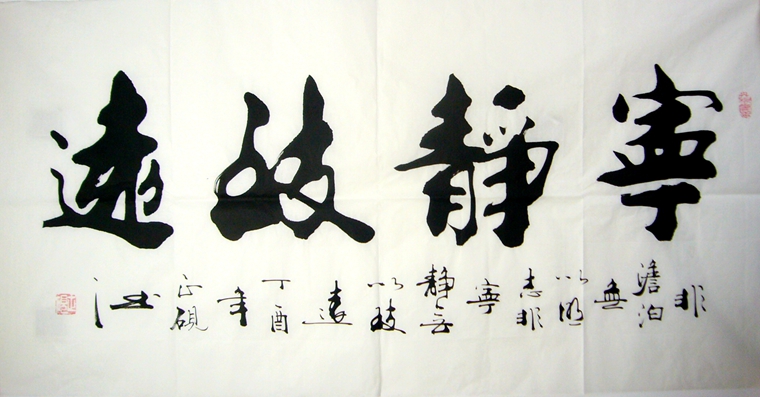 寧靜致遠
非澹泊無以明志非寧靜無以致遠丁酉年正硯书